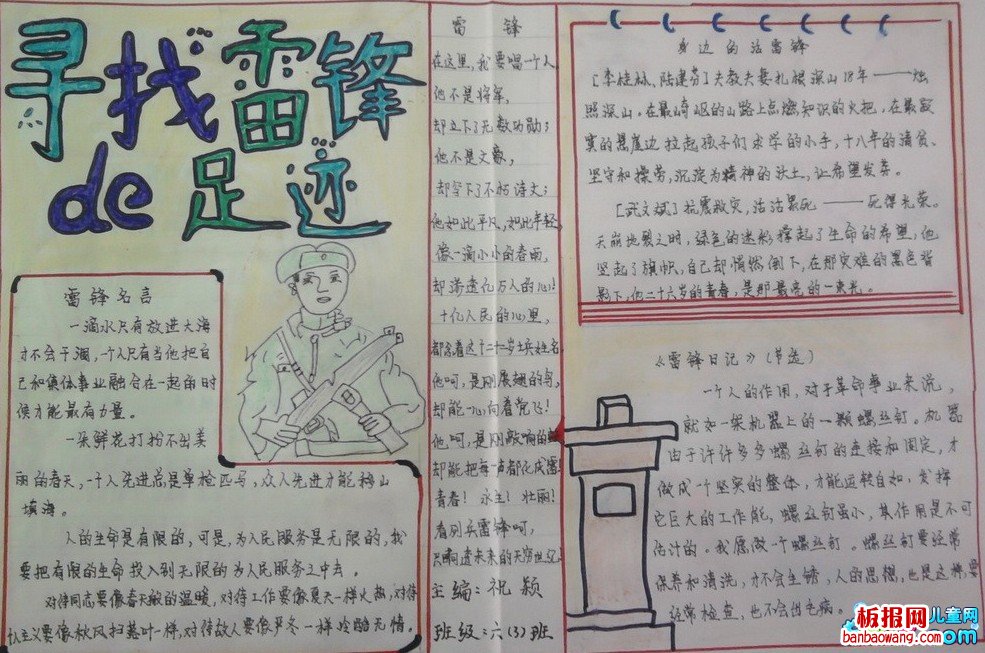 寻找雷锋
de足迹
雷锋名言
一滴水只有放进大海
才不会干涸,一个人只有当他把自
己和集体事业融合在一起的时
候才能最有力量。
一朵鲜花打扮不出美
丽的春天,一个人先进总是单枪匹马,众人先进才能移山
填海。
人的生命是有限的,可是,为人民服务是无限的,我
要把有限的生命投入到无限的为人民服务之中去。
对待同志要像春天般的温暖,对待工作要像夏天一样火热,对待
主义要像秋风扫落叶一样,对待敌人要像严冬一样冷酷无情。
雷锋
在这里,我要唱一个人
他不是将军,
却立下了无数功勋;
他不是文豪,
却写下了不朽诗文;
他如此平凡,如此年轻
像一滴小小的春雨,
却渗透亿万人的心!
十亿人民的心里,
都念着这个二十一岁士兵姓名
他呵,是刚展翅的鸟,
却能一心向着党飞!
他呵,是刚敲响的
却能把每一点都化成雷
青春!永生!壮丽!
看列兵雷锋呵,
主编:祝颖
班级:六(3)班
身边的活雷锋
[李桂林、陆建芬]夫教夫妻扎根深山18年——烛
照深山。在最崎岖的山路上点燃知识的火把,在最寂
寞的悬崖边拉起孩子们求学的小手,十八年的清贫、
坚守和操劳,沉淀为精神的沃土,让希望发芽。
[武文斌]抗震救灾,活活累死——死得光荣。
天崩地裂之时,绿色的迷彩撑起了生命的希望,他
竖起了旗帜,自己却悄然倒下,在那灾难的黑色背
影下,他二十六岁的青春,是那最亮的一束光。
《雷锋日记》(节选)
一个人的作用,对于革命事业来说,
就如一架机器上的一颗螺丝钉。机器
由于许许多多螺丝钉的连接和固定,才
做成一个坚实的整体,才能运转自如,发挥
它巨大的工作能,螺丝钉虽小,其作用是不可
估计的。我愿做一个螺丝钉。螺丝钉要经常
保养和清洗,才不会生锈,人的思想,也是这样,要
经常检查,也不会出毛病。
板报网
儿童网
banbaowang.com
om